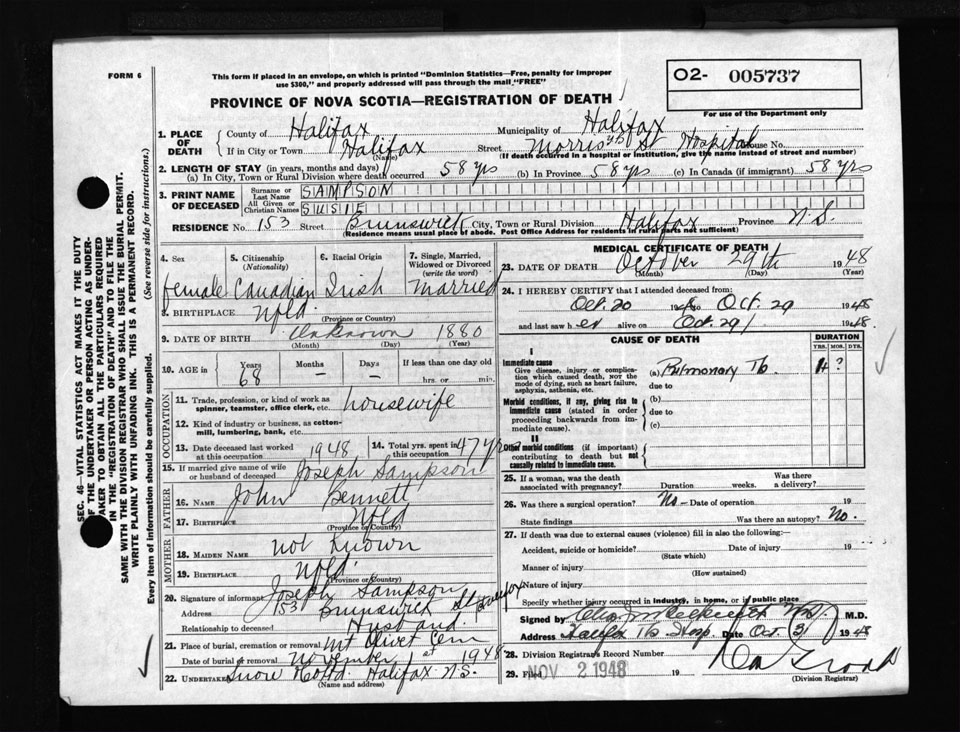 FORM 6
This form if placed in an envelope, on which is printed "Dominion Statistics—Free, penalty for improper
use $300," and properly addressed will pass through the mail "FREE"
O2- 005737
For use of the Department only
PROVINCE OF NOVA SCOTIA—REGISTRATION OF DEATH
1. PLACE OF DEATH
County of Halifax Municipality of Halifax
If in City or Town Halifax (Name) Street Morris St Hospital House No.
(If death occurred in a hospital or institution, give the name instead of street and number)
2. LENGTH OF STAY (in years, months and days)
(a) In City, Town or Rural Division where death occurred 58 yrs (b) In Province 58 yrs (c) In Canada (if immigrant) 58 yrs
3. PRINT NAME OF DECEASED
Surname or Last Name SAMPSON
All Given or Christian Names SUSIE
RESIDENCE No. 153 Street Brunswick City, Town or Rural Division Halifax Province N.S.
(Residence means usual place of abode. Post Office Address for residents in rural parts not sufficient)
4. Sex female
5. Citizenship (Nationality) Canadian
6. Racial Origin Irish
7. Single, Married, Widowed or Divorced (write the word) Married
8. BIRTHPLACE Nfld. (Province or Country)
9. DATE OF BIRTH Unknown 1880
(Month) (Day) (Year)
10. AGE in Years 68 Months – Days – If less than one day old hrs. or min.
OCCUPATION
11. Trade, profession, or kind of work as spinner, teamster, office clerk, etc. housewife
12. Kind of industry or business, as cotton-mill, lumbering, bank, etc.
13. Date deceased last worked at this occupation 1948
14. Total yrs. spent in this occupation 47 yrs
15. If married give name of wife or husband of deceased Joseph Sampson
FATHER
16. NAME John Bennett
17. BIRTHPLACE Nfld (Province or Country)
MOTHER
18. MAIDEN NAME not Known
19. BIRTHPLACE Nfld. (Province or Country)
20. Signature of informant Joseph Sampson
Address 153 Brunswick St Halifax
Relationship to deceased Husband
21. Place of burial, cremation or removal Mt Olivet Cem
Date of burial or removal November 1st 1948
22. Undertaker Snow Halifax N.S.
(Name and address)
MEDICAL CERTIFICATE OF DEATH
23. DATE OF DEATH October 29th 1948
(Month) (Day) (Year)
24. I HEREBY CERTIFY that I attended deceased from:
Oct. 20 to Oct. 29 1948
and last saw her alive on Oct. 29 1948.
CAUSE OF DEATH
DURATION
YRS. MOS. DYS.
I
Immediate cause
Give disease, injury or complication which caused death, NOT the mode of dying, such as heart failure, asphyxia, asthenia, etc.
(a) Pulmonary Tb ?
due to
Morbid conditions, if any, giving rise to immediate cause (stated in order proceeding backwards from immediate cause).
(b)
due to
(c)
II
Other morbid conditions (if important) contributing to death but not causally related to immediate cause.
25. If a woman, was the death associated with pregnancy? Duration weeks. Was there a delivery?
26. Was there a surgical operation? No – Date of operation 19
State findings Was there an autopsy? No.
27. If death was due to external causes (violence) fill in also the following:—
Accident, suicide or homicide? Date of injury 19
(State which)
Manner of injury
(How sustained)
Nature of injury
Specify whether injury occurred in industry, in home, or in public place
Signed by M.D.
Address Halifax Tb Hosp. Date Oct. 31 1948
28. Division Registrar's Record Number
29. Filed NOV 2 1948 19
(Division Registrar)
SEC. 46—VITAL STATISTICS ACT MAKES IT THE DUTY
OF THE UNDERTAKER OR PERSON ACTING AS UNDER-
TAKER TO OBTAIN ALL THE PARTICULARS REQUIRED
IN THE "REGISTRATION OF DEATH" AND TO FILE THE
SAME WITH THE DIVISION REGISTRAR WHO SHALL ISSUE THE BURIAL PERMIT.
WRITE PLAINLY WITH UNFADING INK. THIS IS A PERMANENT RECORD.
Every item of information should be carefully supplied. (See reverse side for instructions.)